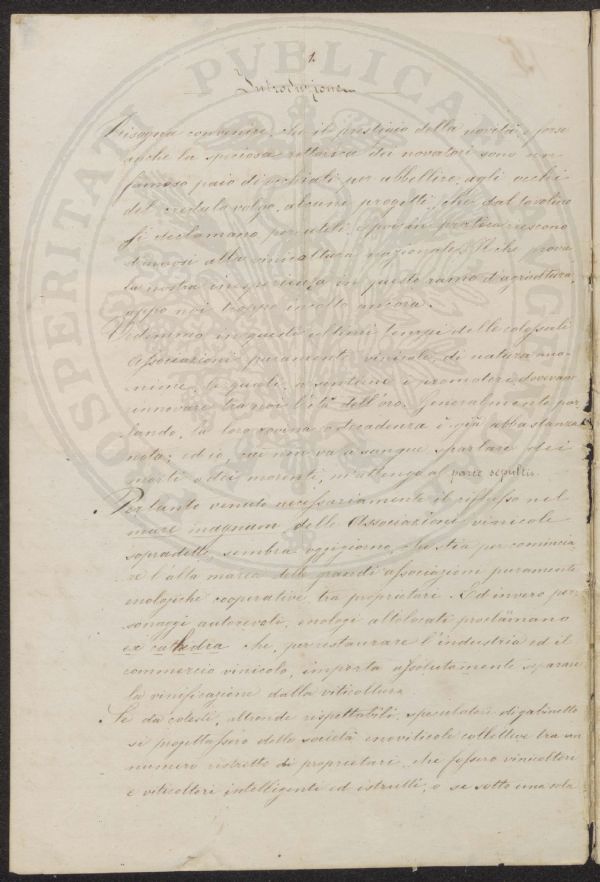 1.
Introduzione
Bisogna convenire, che il prestigio della novità e forse
anche la speciosa rettorica dei novatori sono un
famoso paio di occhiali per abbellire, agli occhi
del credulo volgo, alcuni progetti, che dal tavolino
si declamano per utili, e poi in pratica riescono
dannosi alla vinicoltura nazionale. Il che prova
la nostra inesperienza in questo ramo d'agricoltura,
appo noi troppo incolto ancora.
Vedemmo in questi ultimi tempi delle colossali
Associazioni puramente vinicole, di natura ano-
nime, le quali, a sentirne i promotori, dovevano
rinnovare tra noi l'età dell'oro. Generalmente par-
lando, la loro rovina o decadenza è già abbastanza
nota; ed io, cui non va a sangue sparlare dei
morti o dei morenti, m'attengo al parce sepultis.
Pertanto venuto necessariamente il riflusso nel
mare magnum delle Associazioni vinicole
sopradette, sembra oggigiorno, che stia per comincia
re l'alta marea delle grandi associazioni puramente
enologiche cooperative, tra proprietari. Ed invero per
sonaggi autorevoli, enologi altolocati proclamano
ex cathedra che, per restaurare l'industria ed il
commercio vinicolo, importa assolutamente separare
la vinificazione dalla viticoltura.
Se da cotesti, altronde rispettabili, speculatori di gabinetto
si progettassero delle società enoviticole collettive tra un
numero ristretto di proprietari, che fossero vinicoltori
e viticoltori intelligenti ed istrutti, o se sotto una sola
PROSPERITATI PVBLICAE